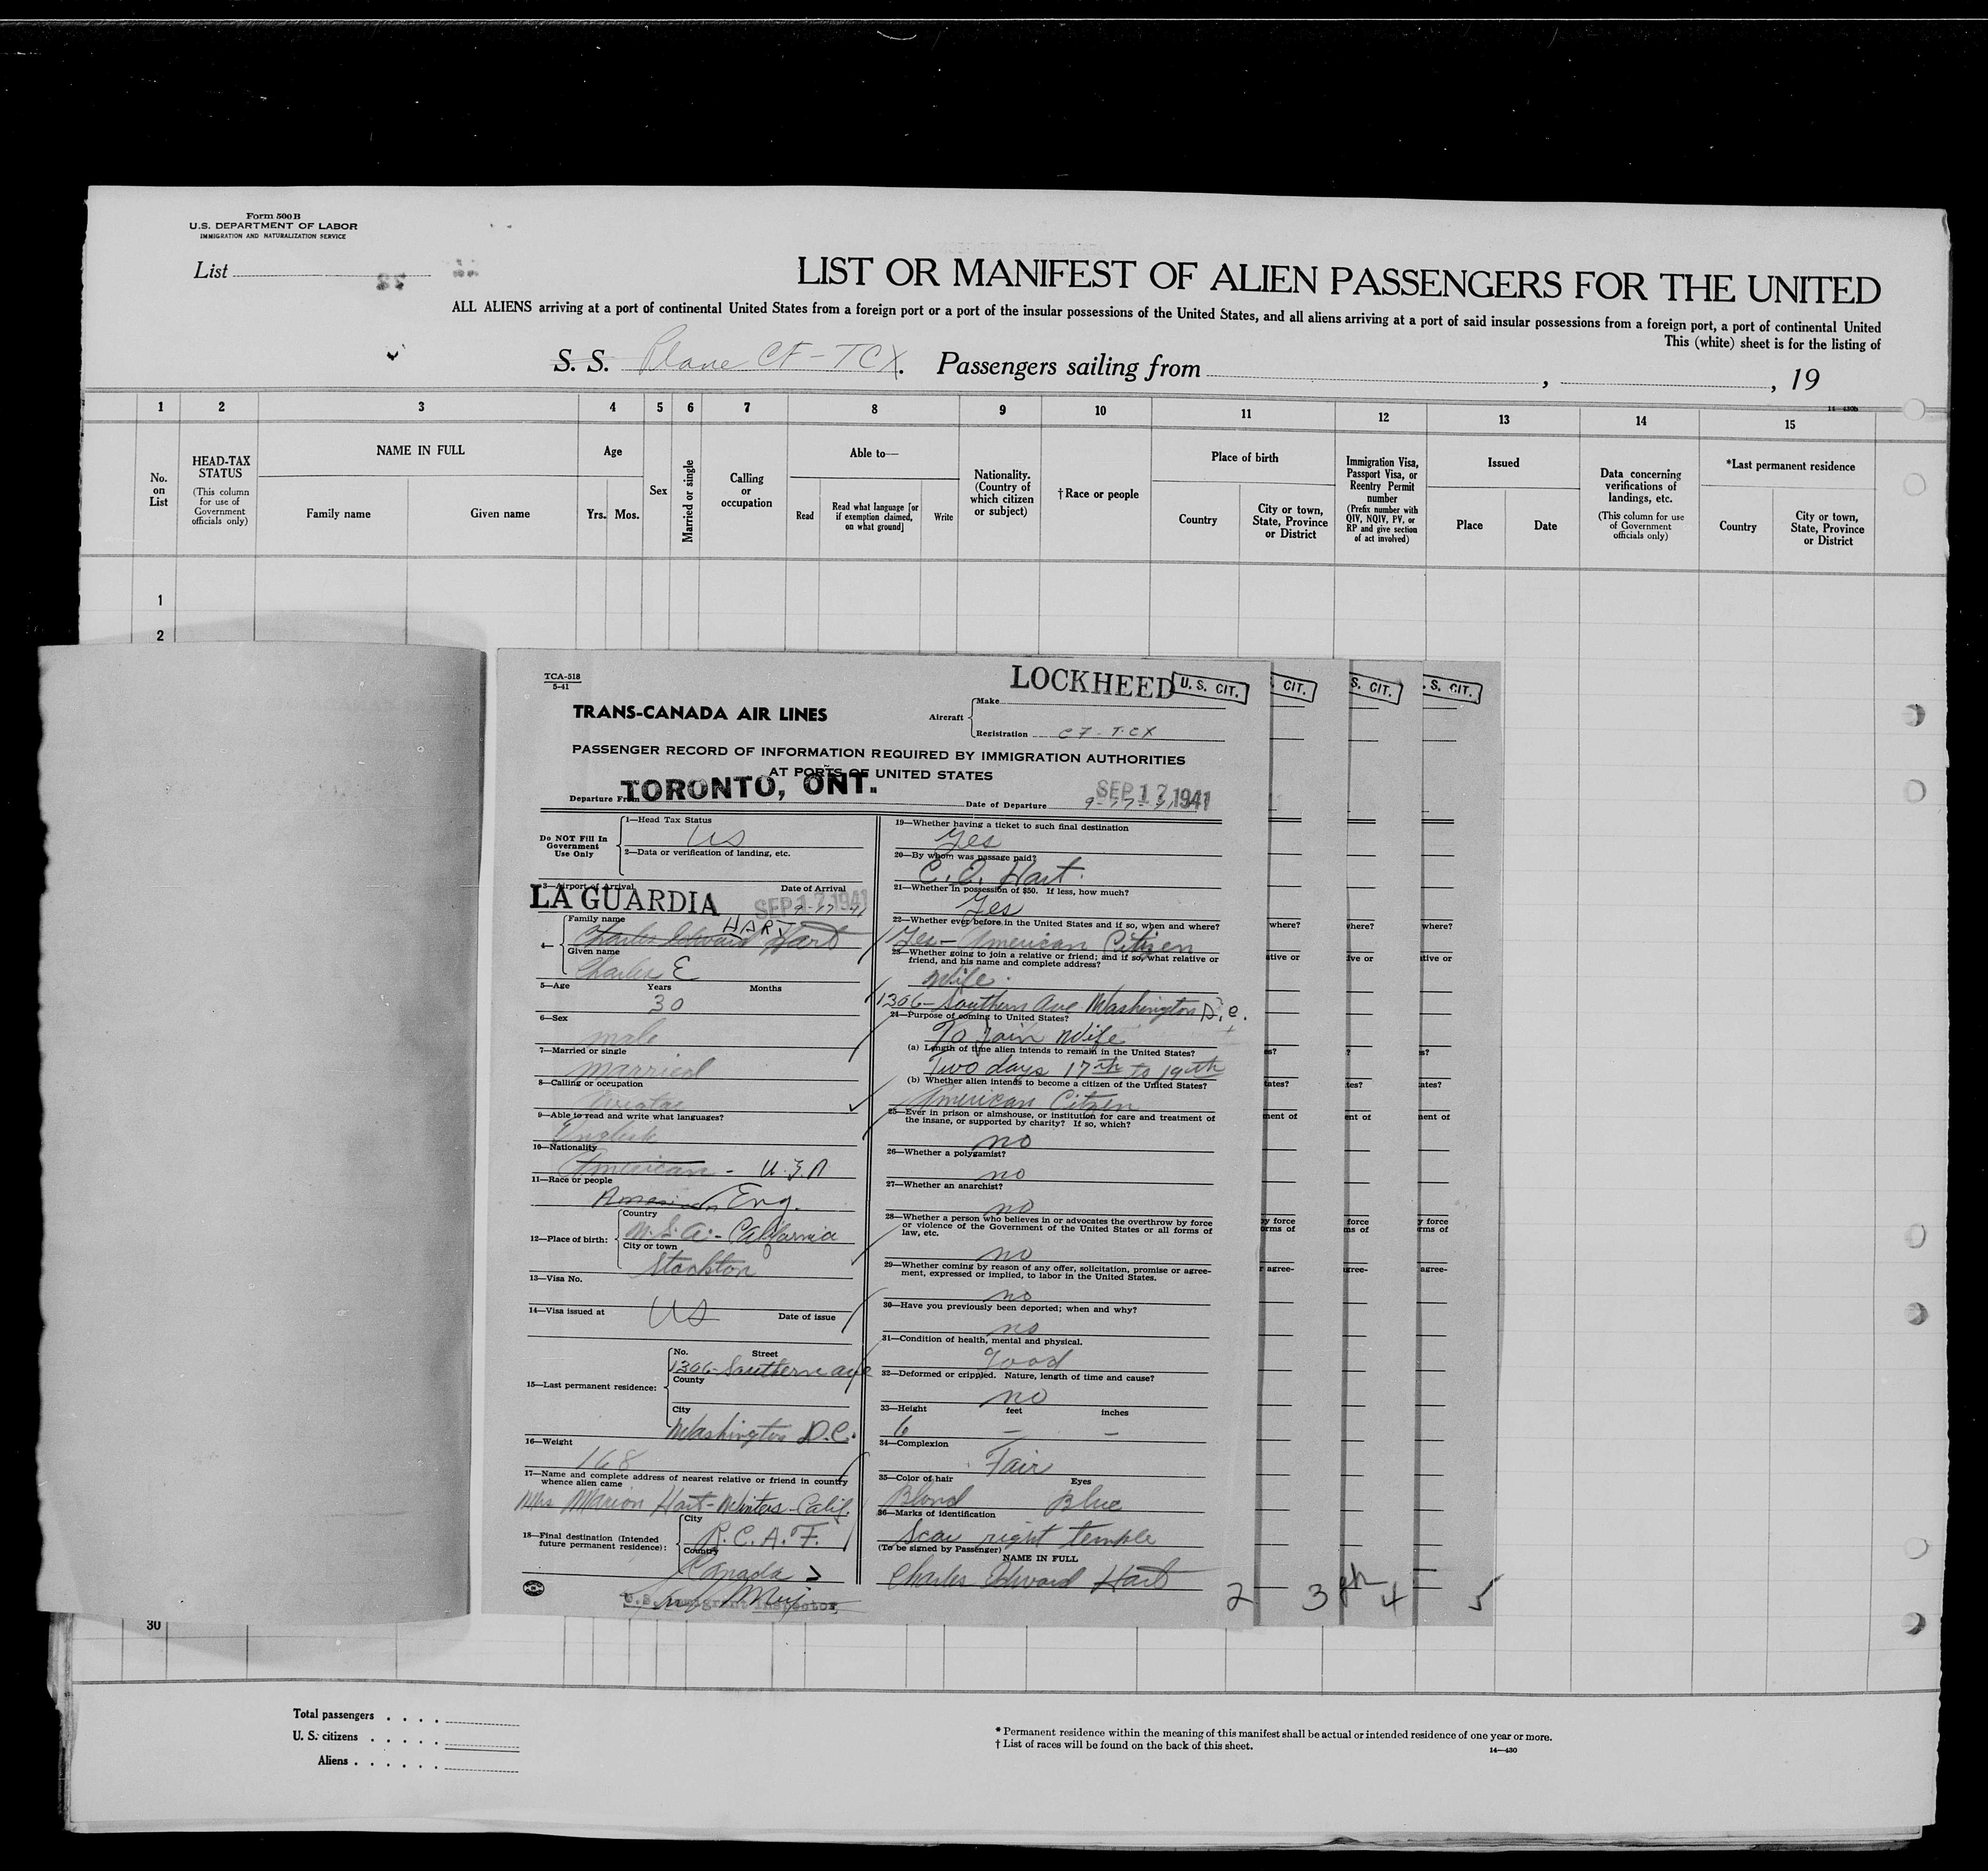 Form 500 B
U.S. DEPARTMENT OF LABOR
IMMIGRATION AND NATURALIZATION SERVICE
List
LIST OR MANIFEST OF ALIEN PASSENGERS FOR THE UNITED
ALL ALIENS arriving at a port of continental United States from a foreign port or a port of the insular possessions of the United States, and all aliens arriving at a port of said insular possessions from a foreign port, a port of continental United
This (white) sheet is for the listing of
S. S. Plane CF-TCX. Passengers sailing from , , 19
14-430b
1 2 3 4 5 6 7 8 9 10 11 12 13 14 15
No. on List
HEAD-TAX STATUS
(This column for use of Government officials only)
NAME IN FULL
Family name
Given name
Age
Yrs. Mos.
Sex
Married or single
Calling or occupation
Able to—
Read
Read what language [or if exemption claimed, on what ground]
Write
Nationality. (Country of which citizen or subject)
†Race or people
Place of birth
Country
City or town, State, Province or District
Immigration Visa, Passport Visa, or Reentry Permit number
(Prefix number with QIV, NQIV, PV, or RP and give section of act involved)
Issued
Place
Date
Data concerning verifications of landings, etc.
(This column for use of Government officials only)
*Last permanent residence
Country
City or town, State, Province or District
1
2
TCA-518
5-41
LOCKHEED
U. S. CIT.
CIT.
S. CIT.
. S. CIT.
TRANS-CANADA AIR LINES
Aircraft
Make
Registration CF-TCX
PASSENGER RECORD OF INFORMATION REQUIRED BY IMMIGRATION AUTHORITIES
AT PORTS OF UNITED STATES
Departure From TORONTO, ONT.
Date of Departure 9-17-41 SEP 17 1941
Do NOT Fill In Government Use Only
1—Head Tax Status
US
2—Data or verification of landing, etc.
3—Airport of Arrival Date of Arrival
LA GUARDIA SEP 17 1941 9-17-41
4—
Family name HART
Charles Edward Hart
Given name
Charles E
5—Age Years Months
30
6—Sex
male
7—Married or single
married
8—Calling or occupation
Aviator
9—Able to read and write what languages?
English
10—Nationality
American - U.S.A
11—Race or people
American Eng.
12—Place of birth:
Country
U.S.A.- California
City or town
Stockton
13—Visa No.
14—Visa issued at US Date of issue
15—Last permanent residence:
No. Street
1306- Southern ave
County
City
Washington D.C.
16—Weight
168
17—Name and complete address of nearest relative or friend in country whence alien came
Mrs Marion Hart-Winters-Calif.
18—Final destination (Intended future permanent residence):
City
R.C.A.F.
Country
Canada
U.S. Immigrant Inspector
19—Whether having a ticket to such final destination
Yes
20—By whom was passage paid?
C.E. Hart.
21—Whether in possession of $50. If less, how much?
Yes
22—Whether ever before in the United States and if so, when and where?
Yes- American Citizen
23—Whether going to join a relative or friend; and if so, what relative or
friend, and his name and complete address?
Wife.
1306- Southern Ave Washington D.C.
24—Purpose of coming to United States?
To Join Wife
(a) Length of time alien intends to remain in the United States?
Two days 17th to 19th
(b) Whether alien intends to become a citizen of the United States?
American Citzen
25—Ever in prison or almshouse, or institution for care and treatment of
the insane, or supported by charity? If so, which?
no
26—Whether a polygamist?
no
27—Whether an anarchist?
no
28—Whether a person who believes in or advocates the overthrow by force
or violence of the Government of the United States or all forms of
law, etc.
no
29—Whether coming by reason of any offer, solicitation, promise or agree-
ment, expressed or implied, to labor in the United States.
no
30—Have you previously been deported; when and why?
no
31—Condition of health, mental and physical.
Good
32—Deformed or crippled. Nature, length of time and cause?
no
33—Height feet inches
6 — —
34—Complexion
Fair
35—Color of hair Eyes
Blond Blue
36—Marks of identification
Scar right temple
(To be signed by Passenger)
NAME IN FULL
Charles Edward Hart
2 3 4 5
30
Total passengers . . . .
U. S. citizens . . . . .
Aliens . . . . . .
* Permanent residence within the meaning of this manifest shall be actual or intended residence of one year or more.
† List of races will be found on the back of this sheet.
14—430